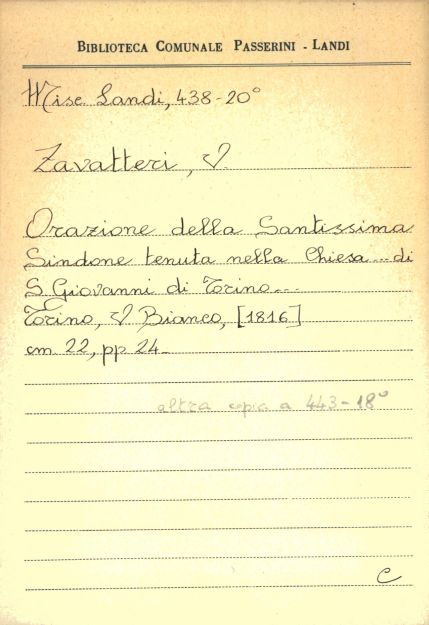 BIBLIOTECA COMUNALE PASSERINI - LANDI
Misc. Landi, 438-20°
Zavatteri, V.
Orazione della Santissima
Sindone tenuta nella Chiesa... di
S. Giovanni di Torino...
Torino, V. Bianco, [1816]
cm 22, pp 24.
altra copia a 443-18°
C